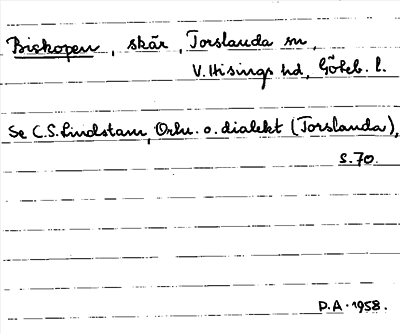 Biskopen, skär, Torslanda sn,
V. Hisings hd, Göteb. l.
Se C.S. Lindstam, Ortn. o. dialekt (Torslanda),
s. 70.
P.A. 1958.